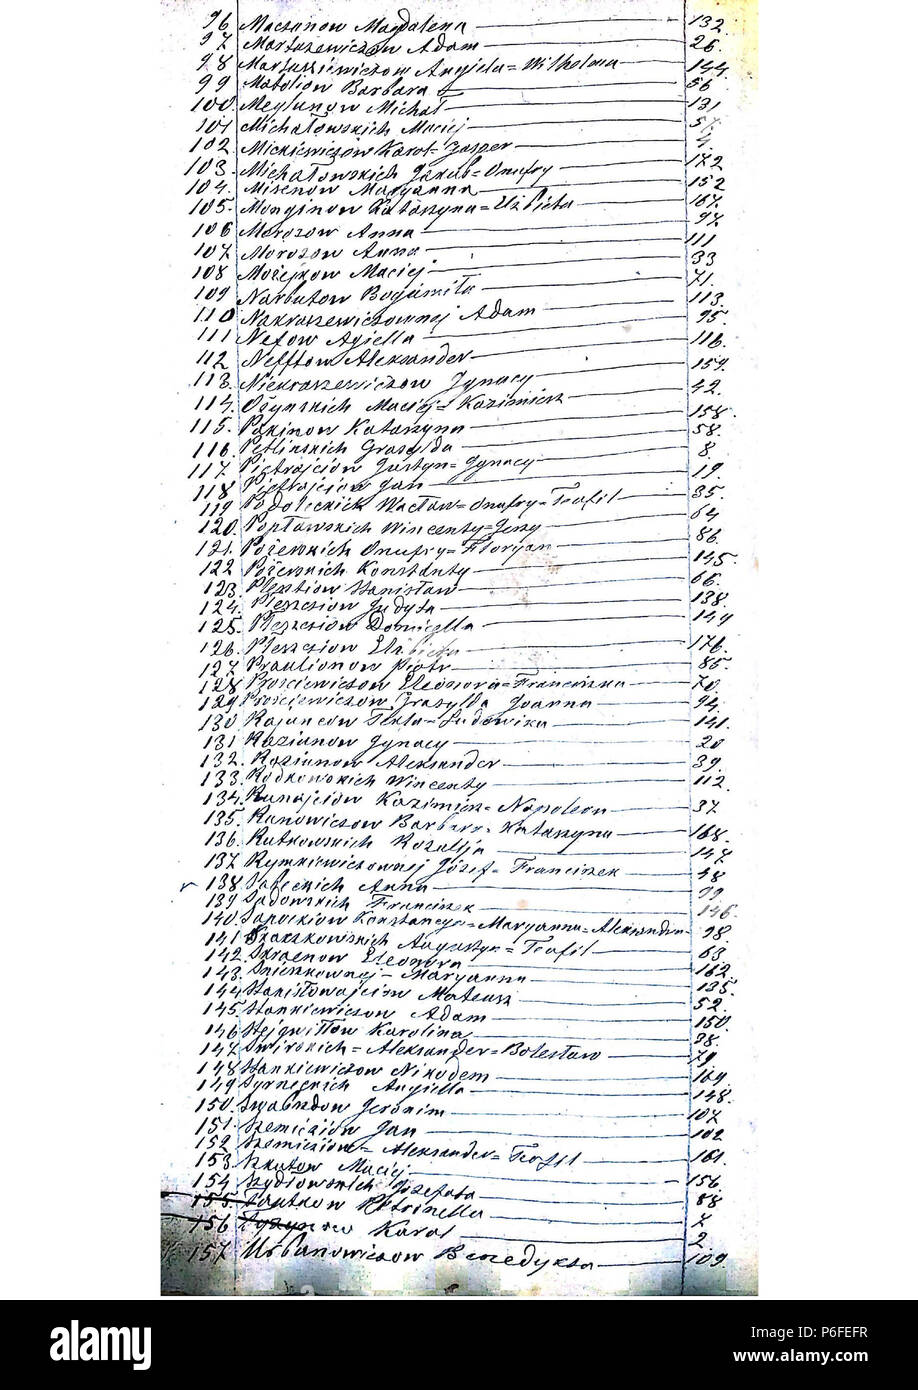 96 Maczanow Magdalena 132.
97. Martuzewiczow Adam 26.
98 Martuskiewiczow Anyiela=Wilhelma 144.
99 Matoliow Barbara 56
100 Meyłunow Michał 131
101 Michałowskich Maciej
102. Mickiewiczów Karol=Jasper 4.
103. Michałowskich Jakub=Onufry 172
104. Misenow Maryanna 152
105. Monginow Katarzyna=Elżbieta 167.
106 Morozow Anna 92
107. Morozow Anna 111
108 Możejkow Maciej 33
109 Narbutow Bogumiła 71.
110 Nakraszewiczownej Adam 113.
111 Nefow Agiella 95.
112 Nefftow Aleksander 116.
113. Niekraszewiczow Jgnacy 154.
114. Ożynskich Maciej=Kazimierz 42.
115. Pakinow Katarzyna 158.
116. Petlinskich Grasylda 58.
117. Pietrajciow Justyn=Jgnacy 8.
118 Pietrajciow Jan 19.
119 Podoleckich Wacław=Onufry=Teofil 35.
120. Popławskich Wincenty=Jerzy 64
121. Pożewskich Onufry=Floryan 86.
122 Pożerskich Konstanty 145.
123. Stanisław 66.
124. Pleszczow Judyta 138.
125. Pleszczow Domicella 149
126. Pleszczow Elżbieta 176.
127. Praulionow Piotr 85
128 Prosciewiczow Eleonora=Franciszka 70.
129 Prosciewiczow Grasylda Joanna 94.
130 Rajuncow Tekla=Ludowika 141.
131 Razianow Jgnacy 20
132. Razianow Aleksander 39.
133. Rodkowskich Wincenty 112
134. Runajciów Kazimierz=Napoleon 37.
135. Runowiczow Barbara=Katarzyna 168.
136. Rutkowskich Rozalija 147
137. Rymkiewiczownej Józef=Franciszek 48
138 Sabeckich Anna 99
139 Sadowskich Franciszek 146.
140. Sapockiow Konstancya=Maryanna=Aleksandra 98.
141. Augustyn=Teofil 63.
142. Skraenow Eleonora 162.
143. Snieszkownej=Maryanna 135.
144. Stanisławajciow Mateusz 52.
145. Stankiewiczow Adam 150.
146 Stejgwiłłow Karolina 38.
147 Swirskich=Aleksander=Bolesław 79
148 Stankiewiczow Nikodem 169.
149 Syrnickich Anyiella 148.
150. Szwabszdow Jeronim 107
151. Szemiciów Jan 102.
152 Szemicziów=Aleksander=Teofil 161.
153. Szkutow Maciej 156
154 Szydłowskich Jozefata 88
155. Tautkow Petronella 7
156 Tyszynow Karol 2
157 Urbanowiczow Benedykta 109.
alamy
Image ID: P6FEFR
www.alamy.com